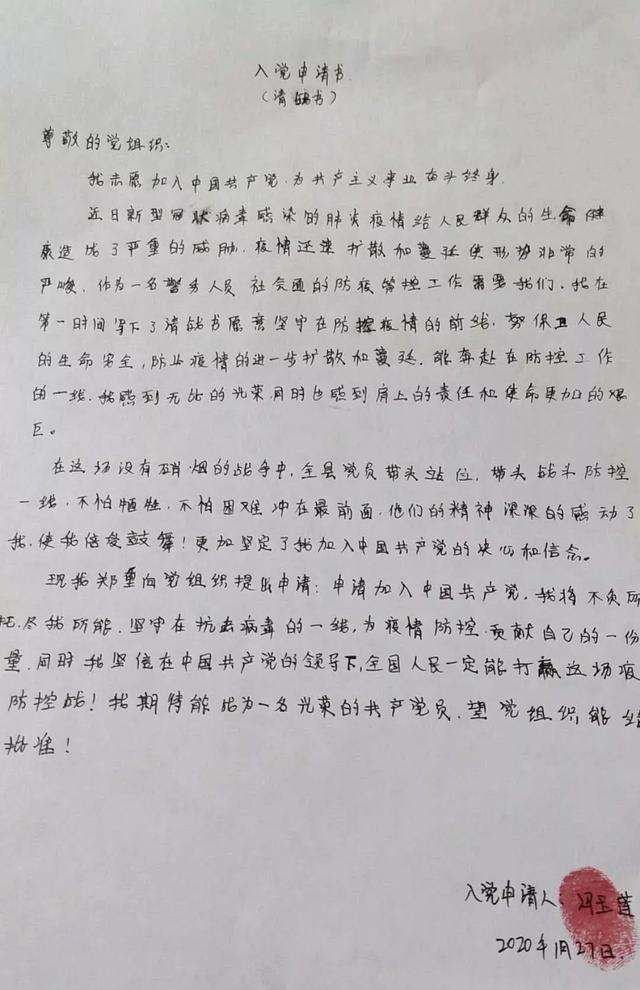 入党申请书
（请战书）
尊敬的党组织:
我志愿加入中国共产党.为共产主义事业奋斗终身.
近日新型冠状病毒感染的肺炎疫情给人民群众的生命健
康造成了严重的威胁.疫情还
扩散加蔓延使形势非常的
严峻.作为一名警务人员 社会面的防疫管控工作需要我们.我在
第一时间写下了请战书愿意坚守在防控疫情的前线.
保卫人民
的生命安全,防止疫情的进一步扩散加蔓延.能奔赴在防控工作
的一线.我感到无比的光荣同时也感到肩上的责任和使命更加的艰
巨。
在这场没有硝烟的战争中,全县党员带头站位,带头战斗防控
一线,不怕牺牲,不怕困难冲在最前面.他们的精神深深的感动了
我,使我倍受鼓舞!更加坚定了我加入中国共产党的决心和信念。
现我郑重向党组织提出申请:申请加入中国共产党,我将不负所
托.尽我所能.坚守在抗击病毒的一线,为疫情防控.贡献自己的一份
量.同时我坚信在中国共产党的领导下,全国人民一定能打赢这场疫
防控战!我期待能成为一名光荣的共产党员.望党组织能给
批准!
入党申请人:冯玉莲
2020年1月27日